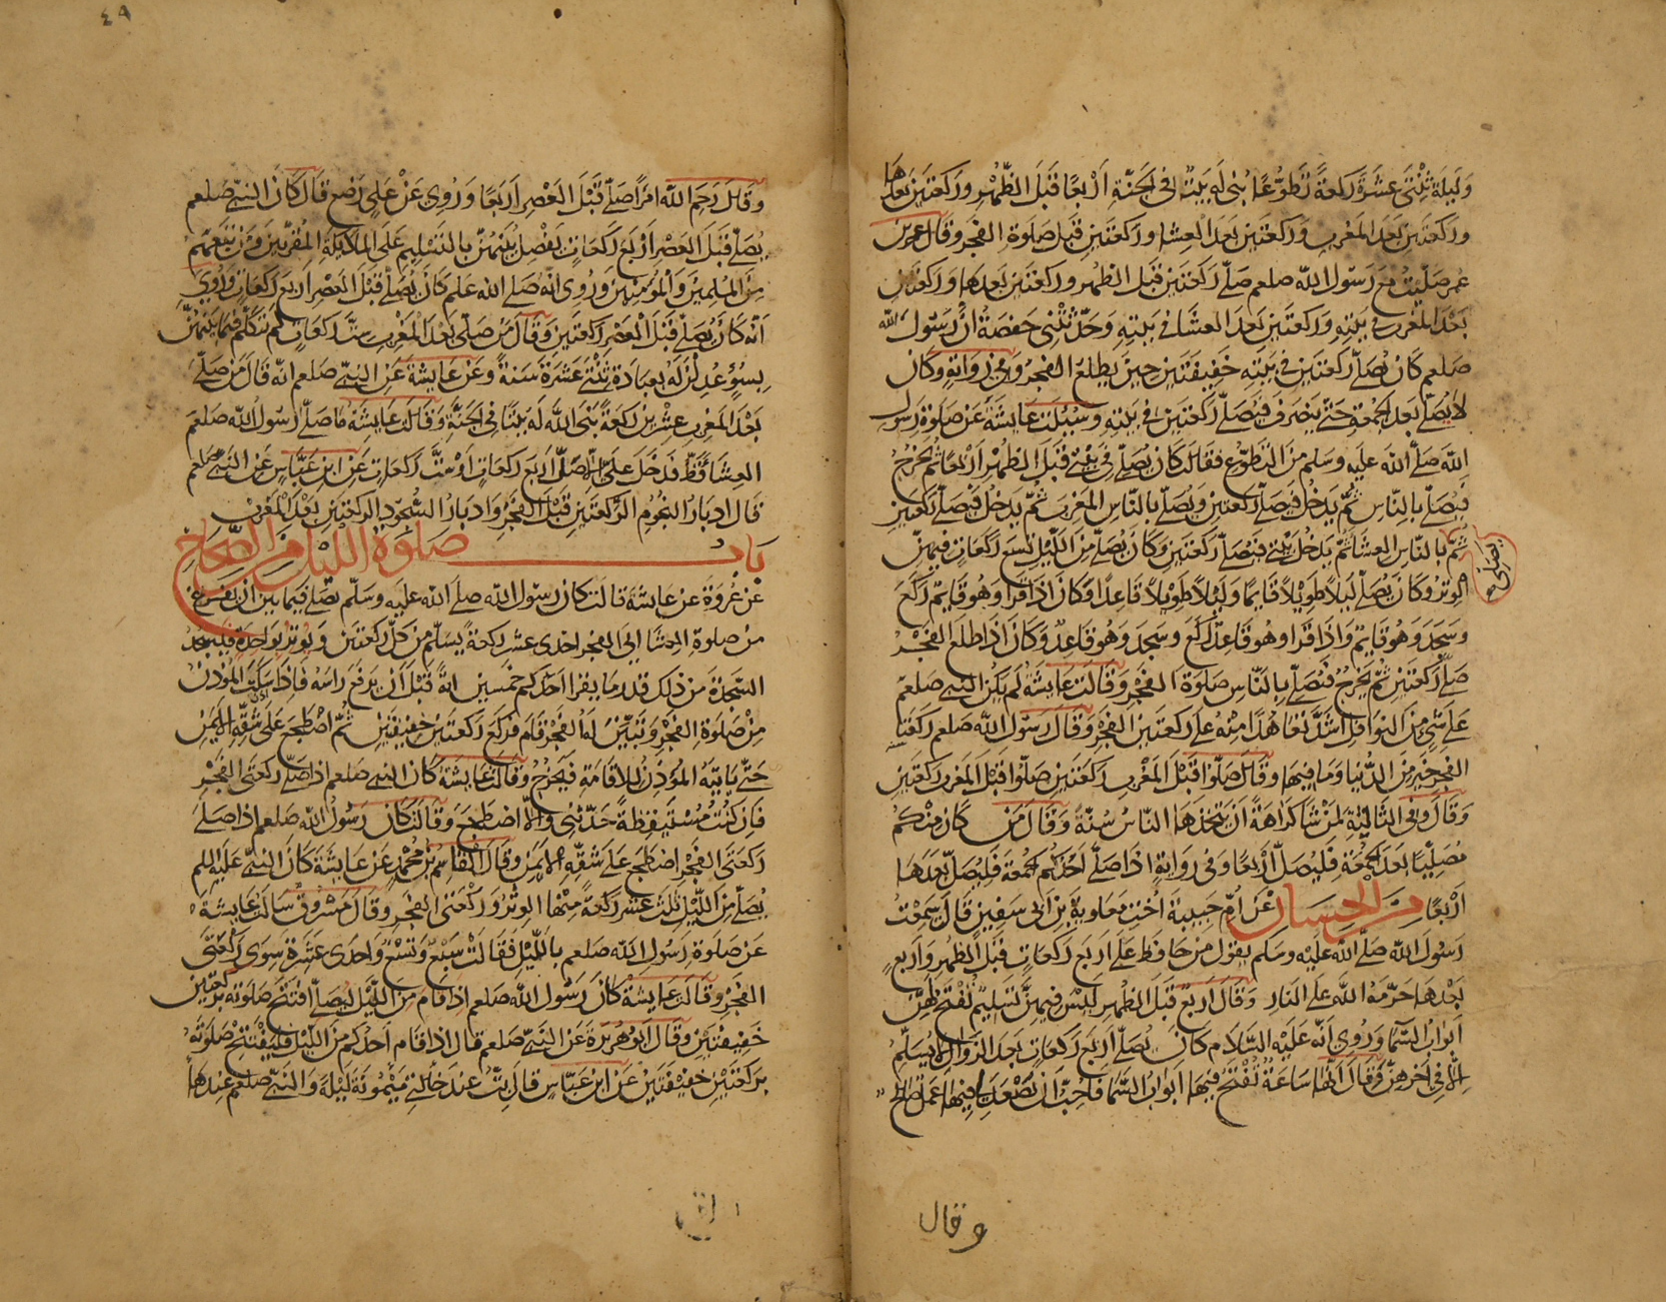 وَلَيلَة ثِنْتَى عَشَرَةَ رَكعَةً تَطَوُّعًا بُنِى لَه بَيْتٌ فى الجَنَّةِ اَرْبعًا قَبْلَ الظُّهْرِ وَرَكعَتَيْن بَعدَهَا
وَركعَتَينِ بَعدَ المَغرِبِ وَرَكعَتَينِ بَعدَ العِشا وركعَتَينِ قَبلَ صَلوةِ الفَجرِ وَقالَ ابن
عُمر صَلّيتُ مَعَ رَسُول الله صلعم رَكعَتَين قَبلَ الظهر وركعَتَين بَعدهَا وَركعَتَين
بَعْدَ المغرب فى بَيْتِهِ وَرَكعتَين بَعدَ العشَا فى بَيتِهِ وَحَدّثَتْنِى حَفصَةُ اَنَّ رَسُولَ الله
صَلعم كانَ يُصَلّى رَكعَتَين فى بَيْتِه خَفيفَتَين حِينَ يَطلعُ الفَجرُ وَفى رِوَايةٍ وَكانَ
لا يُصَلّى بَعدَ الجُمعَةِ حَتّى يَنصَرفَ فَيُصَلّى رَكعتَين فى بَيتِهِ وسُئِلَت عَايشَةُ عَن صَلوة رَسول
الله صَلّى الله علَيه وَسَلم منَ التطوّعِ فقالَت كانَ يُصَلّى فى بَيْتى قَبلَ الظُّهْرِ اَرْبَعًا ثُمّ يَخرُجُ
فَيُصَلّى بالنّاسِ ثُمّ يَدخُلُ فَيُصَلّى رَكعَتين وَيُصَلّى بالنّاس المَغربَ ثمّ يَدخُلُ فَيُصَلّى رَكعتَين
ثُمّ بالنّاسِ العشَا ثُمّ يَدخُلُ بَيْتى فَيُصَلّى رَكعَتَين وَكانَ يُصَلّى مِنَ اللّيلِ تِسعَ رَكَعَاتٍ فيهِنّ
يُصَلّى
الوِترُ وَكانَ يُصَلّى لَيلًا طَوِيْلًا قَائِمًا وَلَيْلًا طَوِيْلًا قَاعِدًا وَكَانَ اذَا قَرَأ وَهُو قَايِمٌ رَكَعَ
وَسَجَدَ وَهُو قَايِمٌ وَاذَا قَرَا وَهُو قَاعِدٌ رَكَعَ وسَجدَ وَهُو قَاعِدٌ وَكَانَ اذَا طلَعَ الفَجْرُ
صَلّى رَكعَتَيْن ثُمّ يَخرُجُ فَيُصَلّى بِالنّاسِ صَلوةَ الفَجْرِ وَقالَت عَايشَةُ لَم يَكُنِ النّبِىّ صلعم
عَلَى شَىٍ مِنَ النوَافِلِ اشَدَّ تَعَاهُدًا مِنْهُ عَلى رَكعتَىِ الفَجْرِ وَقالَ رَسُولُ الله صَلعم رَكعَتَا
الفَجرِ خَيرٌ مِنَ الدُّنيَا وَمَا فِيهَا وَقَالَ صَلّوا قَبْلَ المَغْربِ رَكعَتَينِ صَلّوا قَبْلَ المَغربِ رَكعَتَينِ
وَقَالَ فى الثَّالِثَةِ لِمَنْ شَا كَرَاهَةَ اَنْ يَتَّخِذَهَا النّاسُ سُنّةً وَقَالَ مَن كانَ مِنْكُم
مُصَلِّيًا بَعدَ الجُمُعَةِ فَليُصَلّ اَرْبعًا وَفى رِوَايةٍ اذَا صَلّى اَحَدُكُم الجُمعَةَ فَليُصَلّ بَعدَهَا
اَرْبعًا مِنَ الحِسَان عَن اُمّ حَبِيبَة اُخْتِ مُعَاوِيَةَ بْن ابى سفيٰن قَالَت سَمِعْتُ
رَسُولَ الله صَلّى الله عَلَيْه وَسَلم يَقول مَن حَافظَ عَلَى اَربَع رَكعَاتٍ قَبْلَ الظهر وَاَربعٍ
بَعْدَهَا حَرّمَهُ اللّه عَلى النّارِ وَقَالَ اَربَعٌ قَبلَ الظّهرِ لَيْسَ فِيهِنَّ تَسلِيمٌ تُفتَحُ لَهُنّ
اَبوَابُ السّمَا وَرُوِى اَنّه عَلَيْهِ السَّلَام كانَ يُصَلّى اَرْبَعَ رَكعَاتٍ بَعدَ الزّوَالِ لَا يُسَلّم
الّا فى اٰخِرِهِنّ وَقَالَ اِنّهَا سَاعَةٌ تُفْتَحُ فيهَا اَبوَابُ السّمَا فَاُحِبّ اَن يَصْعَدَ لى فيهَا عَمَلٌ صَالحٌ
وقال
٤٩
وَقَالَ رَحِمَ اللّٰه امْرَأً صَلّى قَبْلَ العَصْرِ اَرْبَعًا وَرُوِى عَنْ عَلى رضع قَالَ كَانَ النّبىّ صَلعم
يُصَلّى قَبلَ العَصْرِ اَرْبَعَ رَكعَاتٍ يَفْصِلُ بَيْنَهُنّ بِالتّسْلِيمِ عَلى المَلايِكَةِ المُقَرّبينَ وَمَنْ تَبِعَهُمْ
مِنَ المُسْلِمينَ وَالمُؤمِنِينَ وَرُوِى انّهُ صَلى الله علم كَانَ يُصَلّى قَبْلَ العَصْرِ اَربَعَ رَكعَاتٍ وَرُوِى
اَنّه كَانَ يُصَلّى قَبْلَ العَصْرِ رَكعَتَينِ وَقَالَ مَن صَلّى بَعْدَ المَغْرِبِ سِتَّ رَكعَاتٍ لَم يَتَكلّم فيمَا بَيْنَهُنَّ
بِسُوٍ عُدِلْنَ لَهُ بِعِبَادَةِ ثِنْتَى عَشَرَةَ سَنَةً وَعَن عَايشَةَ عَن النّبىّ صَلعم انّه قَالَ مَن صَلّى
بَعْدَ المَغرِبِ عِشْرينَ رَكعَةً بَنَى اللّه لَه بَيْتًا فى الجَنَّةِ وَقَالَت عَايشَةُ مَا صَلّى رَسُولُ الله صَلعم
العِشَا قَطّ فَدَخَلَ عَلَىّ الّا صَلّى اَربَعَ رَكعَاتٍ اَوْ سِتَّ رَكعَاتٍ عَن ابن عَبّاسٍ عَن النّبىّ صَلعم
قَالَ ادبَارُ النُّجُومِ الرَّكعَتَينِ قَبْلَ الفَجْرِ وَادبَارُ السُّجُودِ الرَكعَتَين بَعْدَ المَغربِ
بَاب صَلوة اللّيْل مِنَ الصِّحَاحِ
عَن عُروَةَ عَن عَايشَةَ قالَت كان رَسُول الله صلى الله عليه وَسَلّم يُصَلّى فِيمَا بَينَ اَنْ يَفْرغَ
منْ صَلوةِ العِشَا الى الفَجر احدى عَشر رَكعَةً يُسَلّم مِنْ كلّ ركعَتَين وَيُوتِرُ بوَاحِدَةٍ فَيَسْجُدُ
السَّجدَةَ منْ ذلك قَدرَ مَا يقرا احَدُكم خمسينَ ايةً قَبْلَ اَنْ يَرفَعَ رَاسَهُ فَاذَا سَكَتَ المُؤَذِّنُ
مِنْ صَلوةِ الفَجْرِ وَتَبَيَّنَ لَهُ الفَجْرُ قَامَ فَرَكَعَ رَكعَتَين خَفِيفَتَيْنِ ثُمّ اضْطَجَعَ عَلَى شقّهِ الايمن
حَتّى يَاتِيَهُ المؤَذّنُ لِلاقَامَةِ فَيَخرُجُ وَقَالَت عَايشَةُ كانَ النبى صَلعم اذا صَلّى رَكعتَى الفَجْرِ
فَان كنْتُ مُسْتَيقِظَةً حَدّثَنى وَالّا اضطَجَعَ وَقَالت كانَ رَسُولُ اللّه صَلعم اذَا صَلّى
رَكعَتَى الفَجْرِ اضطجَعَ عَلى شقّهِ الايمَن وَقَالَ القَاسِمُ بْنُ مُحَمّدٍ عَنْ عَايشَةَ كَانَ النبىّ عَلَيه السلم
يُصَلّى مِنَ اللّيْلِ ثَلثَ عَشْرَ رَكعَةً مِنْهَا الوِتْرُ وَرَكْعَتَى الفَجرِ وَقَالَ مَسْرُوقٌ سَالتُ عَايشَةَ
عَن صَلوة رَسُولِ اللّه صَلعم بِاللّيْلِ فَقَالَتْ سَبْعٌ وَتِسْعٌ وَاحدَى عَشَرَةَ سِوَى رَكْعَتَى
الفَجْرِ وقَالَت عَايشَةُ كَانَ رَسُول الله صَلعم اذا قَامَ مِنَ اللّيْلِ لِيُصَلّى افْتَتَحَ صَلوتَه بركعتَين
خَفِيفَتَيْنِ وَقَالَ اَبُو هُرَيْرَةَ عَن النّبىّ صَلعم قال اذا قَام اَحَدُكُم مِنَ اللّيْلِ فَلْيَفْتَتِحْ صَلوتَهُ
بِرَكعَتَيْنِ خَفِيْفَتَيْنِ عَنْ ابنِ عَبّاسٍ قالَ بِتُّ عِندَ خَالَتِى مَيْمُونَةَ لَيْلَةً وَالنّبىّ صَلعم عِندَهَا